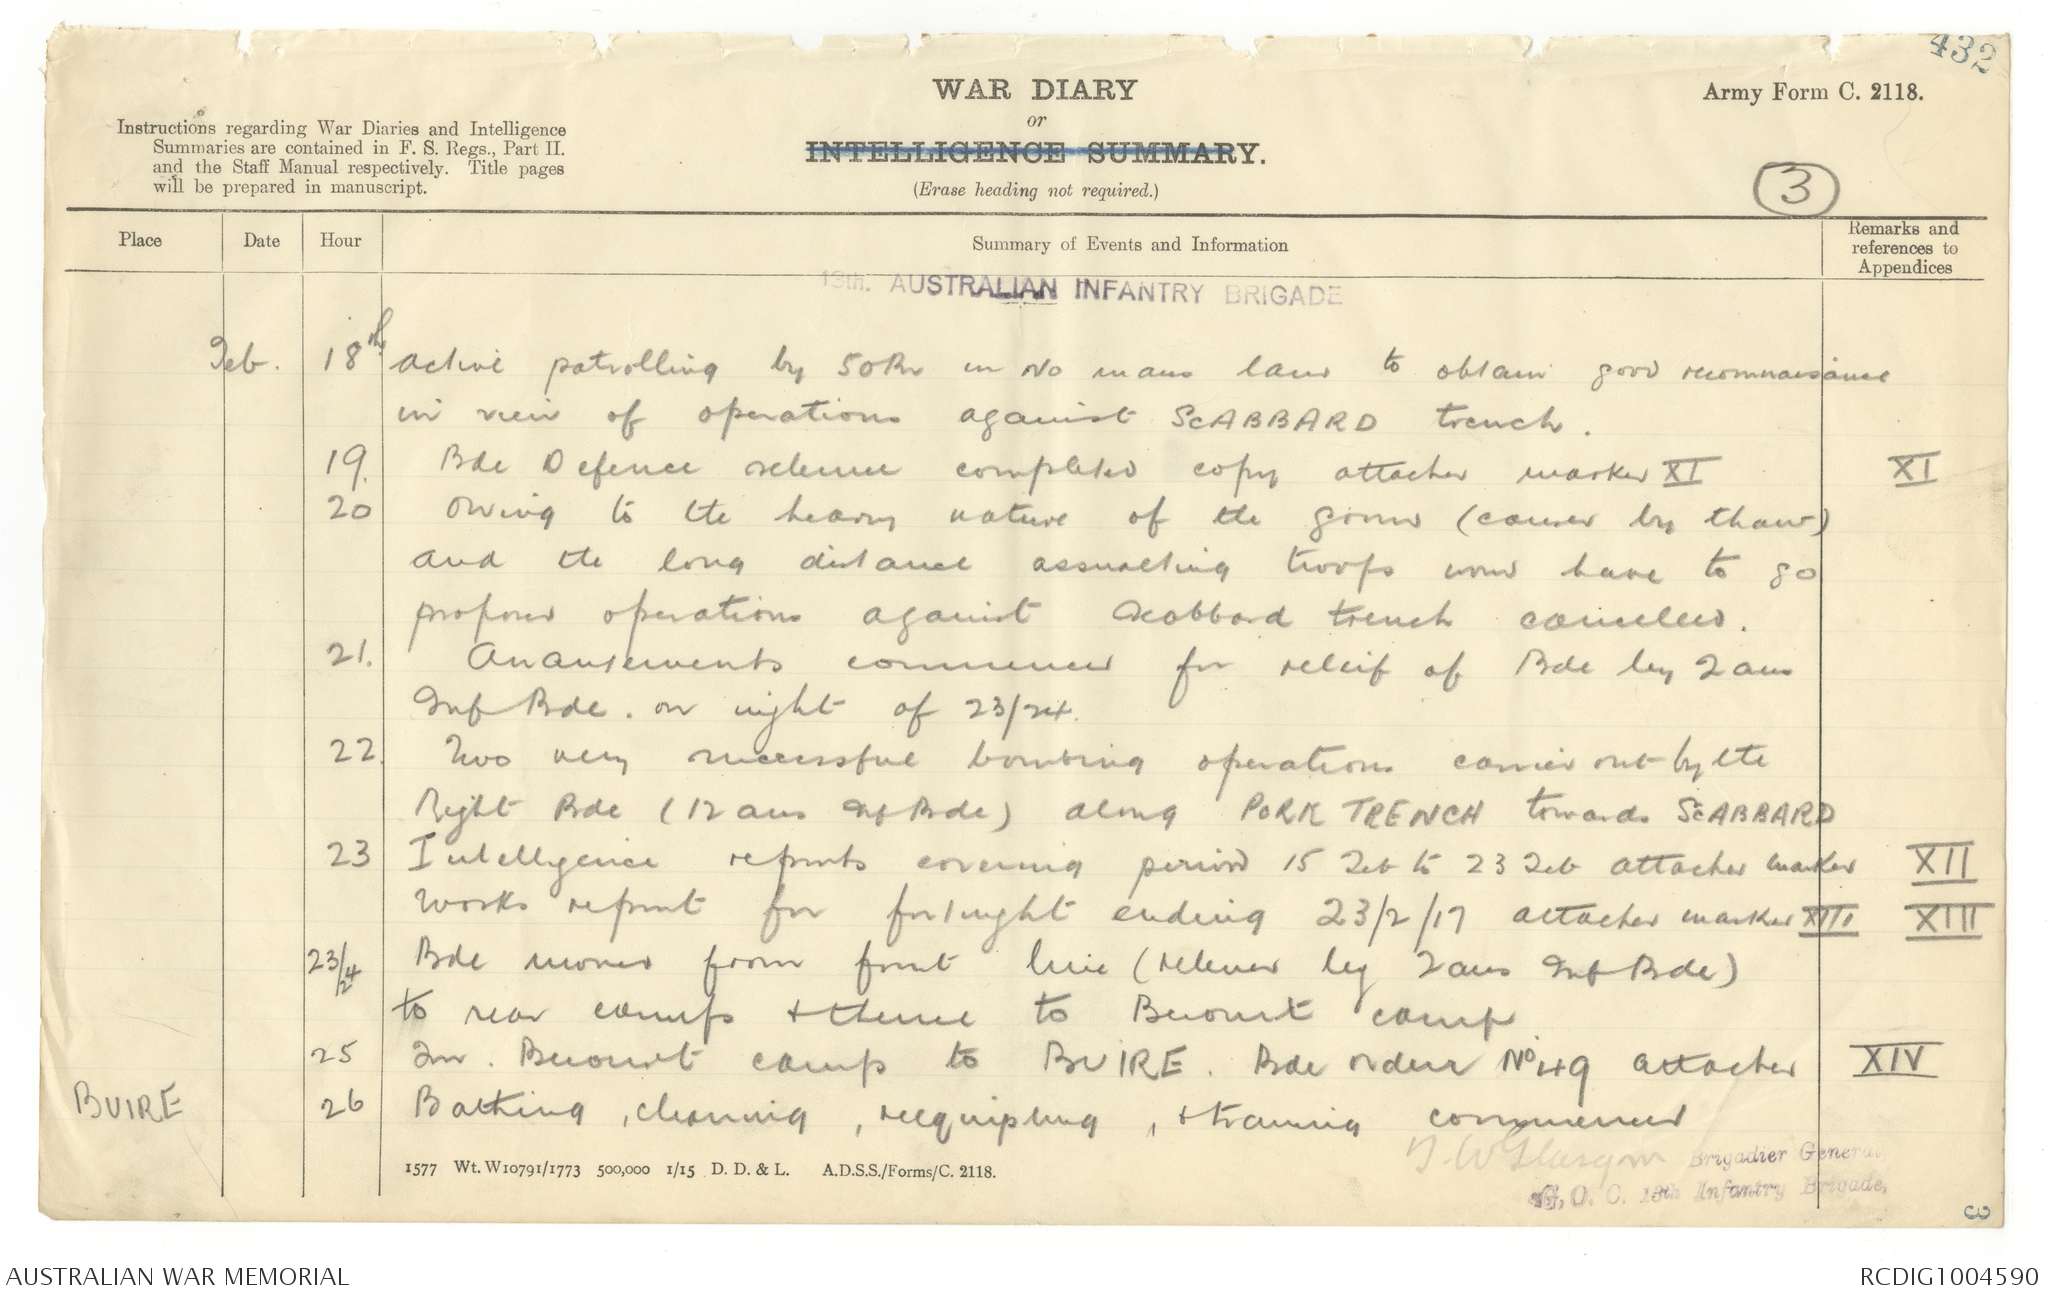 432
WAR DIARY
or
INTELLIGENCE SUMMARY.
(Erase heading not required.)
Army Form C. 2118.
Instructions regarding War Diaries and Intelligence
Summaries are contained in F. S. Regs., Part II.
and the Staff Manual respectively. Title pages
will be prepared in manuscript.
3
Place Date Hour Summary of Events and Information Remarks and references to Appendices
13th. AUSTRALIAN INFANTRY BRIGADE
Feb. 18th active patrolling by 50Bn in No mans land to obtain good reconnaisance
in view of operations against ScABBARD trench.
19. Bde Defence scheme completed copy attached marked XI XI
20 Owing to the heavy nature of the ground (caused by thaw)
and the long distance assualting troops would have to go
proposed operations against Scabbard trench cancelled.
21. Arrangements commenced for releif of Bde by 2 aus
Inf Bde. on night of 23/24.
22. Two very successful bombing operations carried out by the
Right Bde (12 aus Inf Bde) along PORK TRENCH towards ScABBARD
23 Intelligence reports covering period 15 Feb to 23 Feb attached marked XII
Works report for fortnight ending 23/2/17 attached marked XIII XIII
23/24 Bde moved from front line (relieved by 2 aus Inf Bde)
to rear camps & thence to Becourt camp.
25 Becourt camp to BUIRE. Bde order No 49 attached XIV
BUIRE 26 Bathing, cleaning, reequipping, & training commenced
T. W Glasgow Brigadier General,
G. O. C. 13th Infantry Brigade,
1577 Wt. W10791/1773 500,000 1/15 D. D. & L. A.D.S.S./Forms/C. 2118.
3
AUSTRALIAN WAR MEMORIAL RCDIG1004590